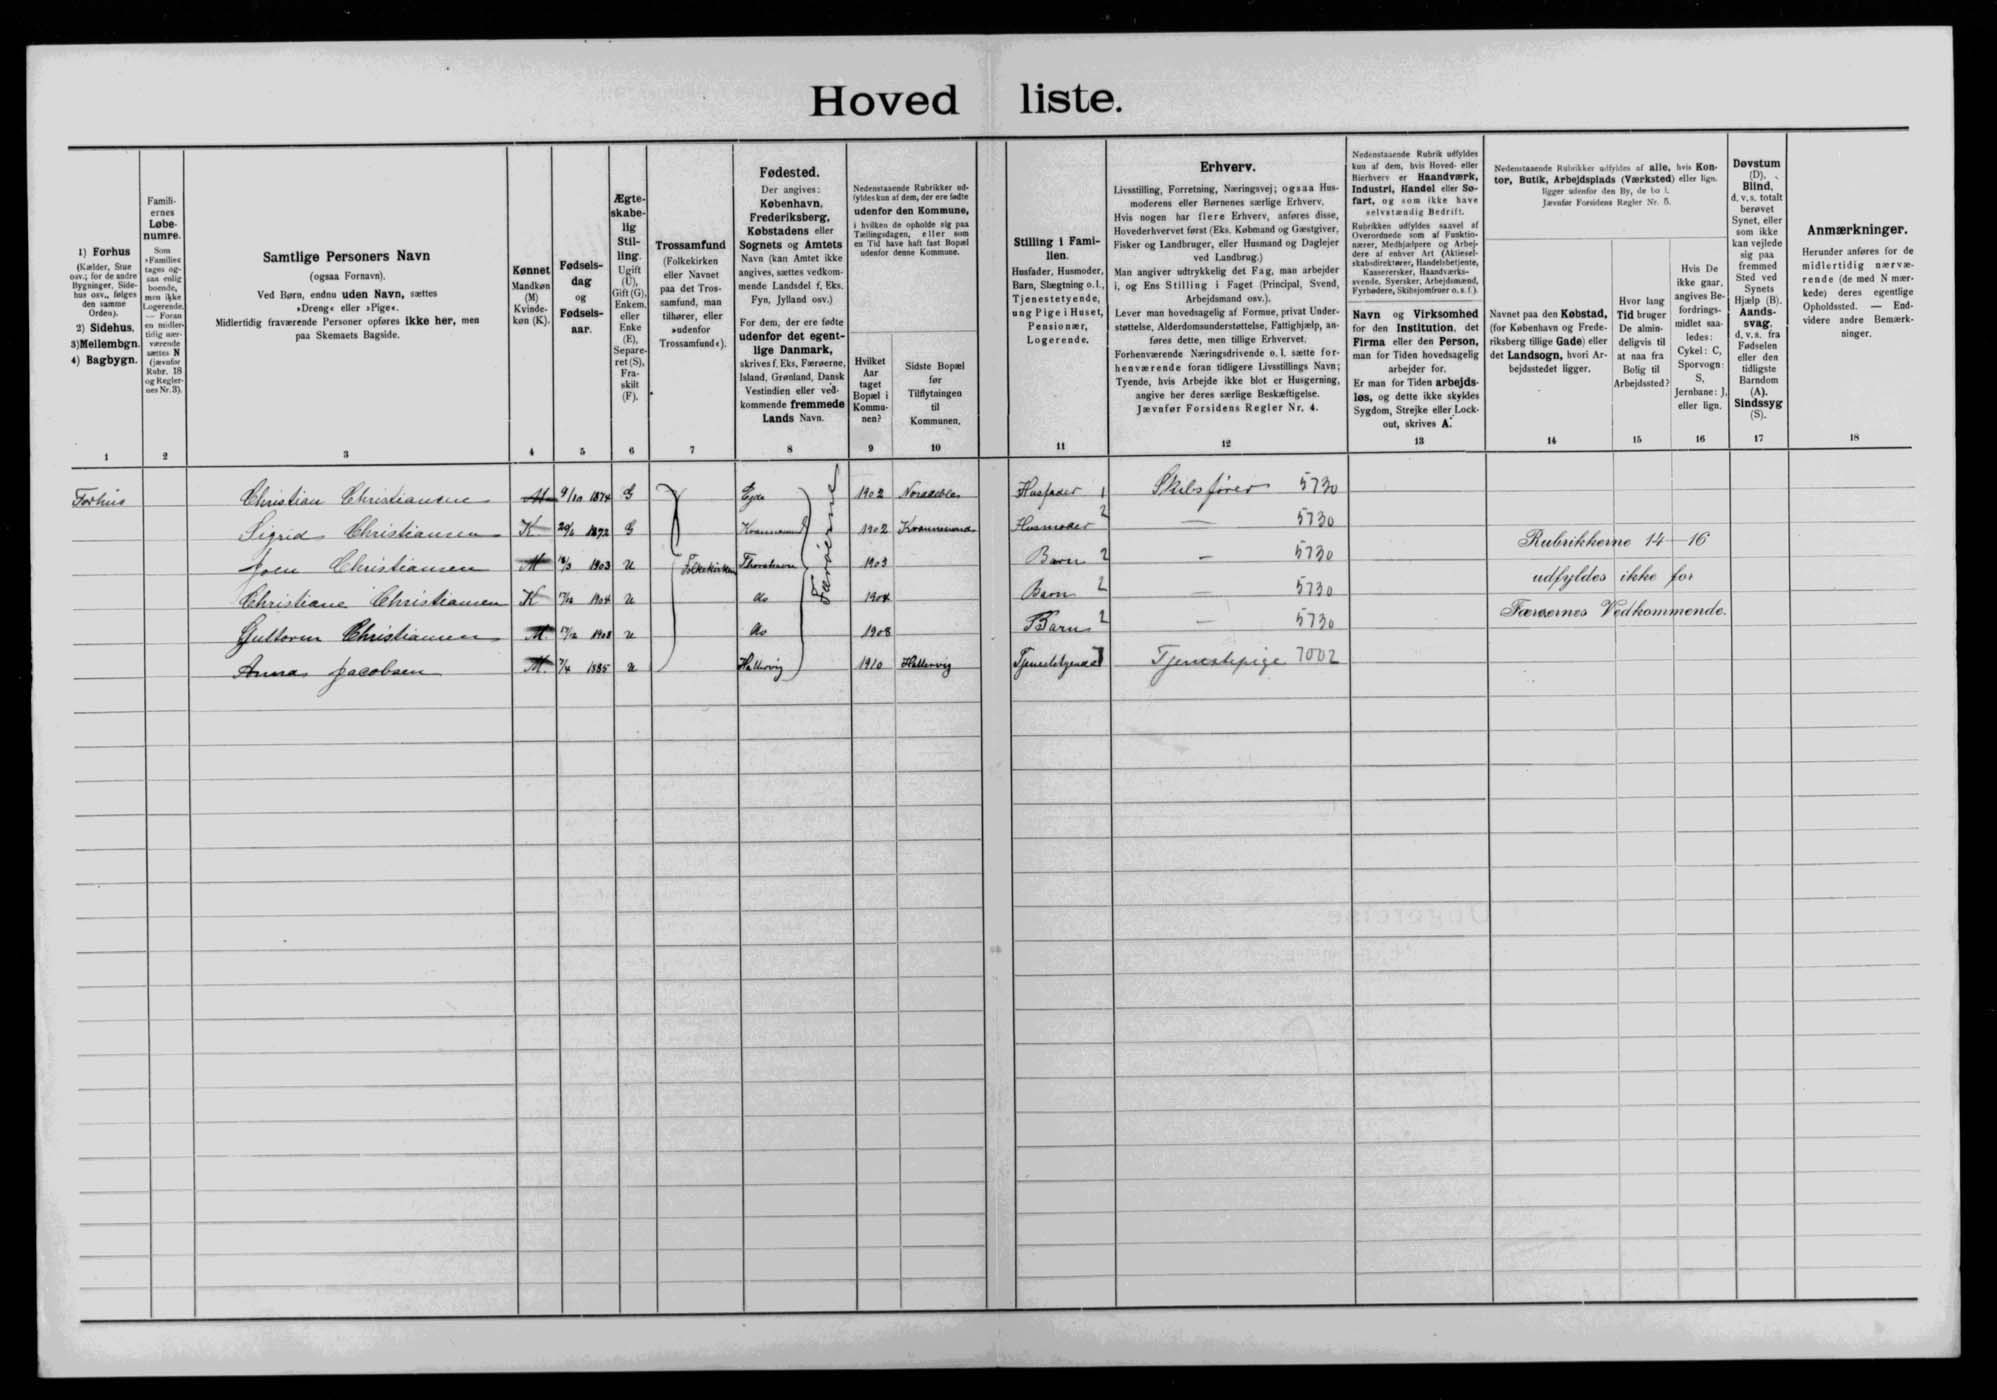 Hoved liste.
1) Forhus
(Kælder, Stue
osv.; for de andre
Bygninger, Side-
hus osv., følges
den samme
Orden).
2) Sidehus.
3) Mellembgn.
4) Bagbygn.
1
Famili-
ernes
Løbe-
numre.
Som
»Familie«
tages og-
saa enlig
boende,
men ikke
Logerende.
— Foran
en midler-
tidig nær-
værende
sættes N
(jævnfør
Rubr. 18
og Regler-
nes Nr. 3).
2
Samtlige Personers Navn
(ogsaa Fornavn).
Ved Børn, endnu uden Navn, sættes
»Dreng« eller »Pige«.
Midlertidig fraværende Personer opføres ikke her, men
paa Skemaets Bagside.
3
Kønnet
Mandkøn
(M)
Kvinde-
køn (K).
4
Fødsels-
dag
og
Fødsels-
aar.
5
Ægte-
skabe-
lig
Stil-
ling.
Ugift
(U),
Gift (G),
Enkem.
eller
Enke
(E),
Separe-
ret (S),
Fra-
skilt
(F).
6
Trossamfund
(Folkekirken
eller Navnet
paa det Tros-
samfund, man
tilhører, eller
»udenfor
Trossamfund«).
7
Fødested.
Der angives:
København,
Frederiksberg,
Købstadens eller
Sognets og Amtets
Navn (kan Amtet ikke
angives, sættes vedkom-
mende Landsdel f. Eks.
Fyn, Jylland osv.)
For dem, der ere fødte
udenfor det egent-
lige Danmark,
skrives f. Eks. Færøerne,
Island, Grønland, Dansk
Vestindien eller ved-
kommende fremmede
Lands Navn.
8
Nedenstaaende Rubrikker ud-
fyldes kun af dem, der ere fødte
udenfor den Kommune,
i hvilken de opholde sig paa
Tællingsdagen, eller som
en Tid have haft fast Bopæl
udenfor denne Kommune.
Hvilket
Aar
taget
Bopæl i
Kommu-
nen?
9
Sidste Bopæl
før
Tilflytningen
til
Kommunen.
10
Stilling i Fami-
lien.
Husfader, Husmoder,
Barn, Slægtning o.l.,
Tjenestetyende,
ung Pige i Huset,
Pensionær,
Logerende.
11
Erhverv.
Livsstilling, Forretning, Næringsvej; ogsaa Hus-
moderens eller Børnenes særlige Erhverv.
Hvis nogen har flere Erhverv, anføres disse,
Hovederhvervet først (Eks. Købmand og Gæstgiver,
Fisker og Landbruger, eller Husmand og Daglejer
ved Landbrug.)
Man angiver udtrykkelig det Fag, man arbejder
i, og Ens Stilling i Faget (Principal, Svend,
Arbejdsmand osv.).
Lever man hovedsagelig af Formue, privat Under-
støttelse, Alderdomsunderstøttelse, Fattighjælp, an-
føres dette, men tillige Erhvervet.
Forhenværende Næringsdrivende o. l. sætte for-
henværende foran tidligere Livsstillings Navn;
Tyende, hvis Arbejde ikke blot er Husgerning,
angive her deres særlige Beskæftigelse.
Jævnfør Forsidens Regler Nr. 4.
12
Nedenstaaende Rubrik udfyldes
kun af dem, hvis Hoved- eller
Bierhverv er Haandværk,
Industri, Handel eller Sø-
fart, og som ikke have
selvstændig Bedrift.
Rubrikken udfyldes saavel af
Overordnede som af Funktio-
nærer, Medhjælpere og Arbej-
dere af enhver Art (Aktiesel-
skabsdirektører, Handelsbetjente,
Kasserersker, Haandværks-
svende, Syersker, Arbejdsmænd,
Fyrbødere, Skibsjomfruer o. s. f.).
Navn og Virksomhed
for den Institution, det
Firma eller den Person,
man for Tiden hovedsagelig
arbejder for.
Er man for Tiden arbejds-
løs, og dette ikke skyldes
Sygdom, Strejke eller Lock-
out, skrives A.
13
Nedenstaaende Rubrikker udfyldes af alle, hvis Kon-
tor, Butik, Arbejdsplads (Værksted) eller lign.
ligger udenfor den By, de bo i.
Jævnfør Forsidens Regler Nr. 5.
Navnet paa den Købstad,
(for København og Frede-
riksberg tillige Gade) eller
det Landsogn, hvori Ar-
bejdsstedet ligger.
14
Hvor lang
Tid bruger
De almin-
deligvis til
at naa fra
Bolig til
Arbejdssted?
15
Hvis De
ikke gaar,
angives Be-
fordrings-
midlet saa-
ledes:
Cykel: C,
Sporvogn:
S,
Jernbane: J,
eller lign.
16
Døvstum
(D),
Blind,
d. v. s. totalt
berøvet
Synet, eller
som ikke
kan vejlede
sig paa
fremmed
Sted ved
Synets
Hjælp (B).
Aands-
svag,
d. v. s. fra
Fødselen
eller den
tidligste
Barndom
(A).
Sindssyg
(S).
17
Anmærkninger.
Herunder anføres for de
midlertidig nærvæ-
rende (de med N mær-
kede) deres egentlige
Opholdssted. — End-
videre andre Bemærk-
ninger.
18
Forhus Christian Christiansen M 9/10 1874 G Ejde 1902 Husfader 1 Skibsfører 5730
Sigrid Christiansen K 1872 G 1902 Husmoder 2 — 5730
Joen Christiansen M 1903 U Folkekirken Thorshavn 1903 Barn 2 — 5730
Christiane Christiansen K 1904 U do 1904 Barn 2 — 5730
Guttorm Christiansen M 1908 U do 1908 Barn 2 — 5730
Anna Jacobsen M. 1885 U 1910 Tjenestepige 7002
Færøerne
Rubrikkerne 14—16
udfyldes ikke for
Færøernes Vedkommende.